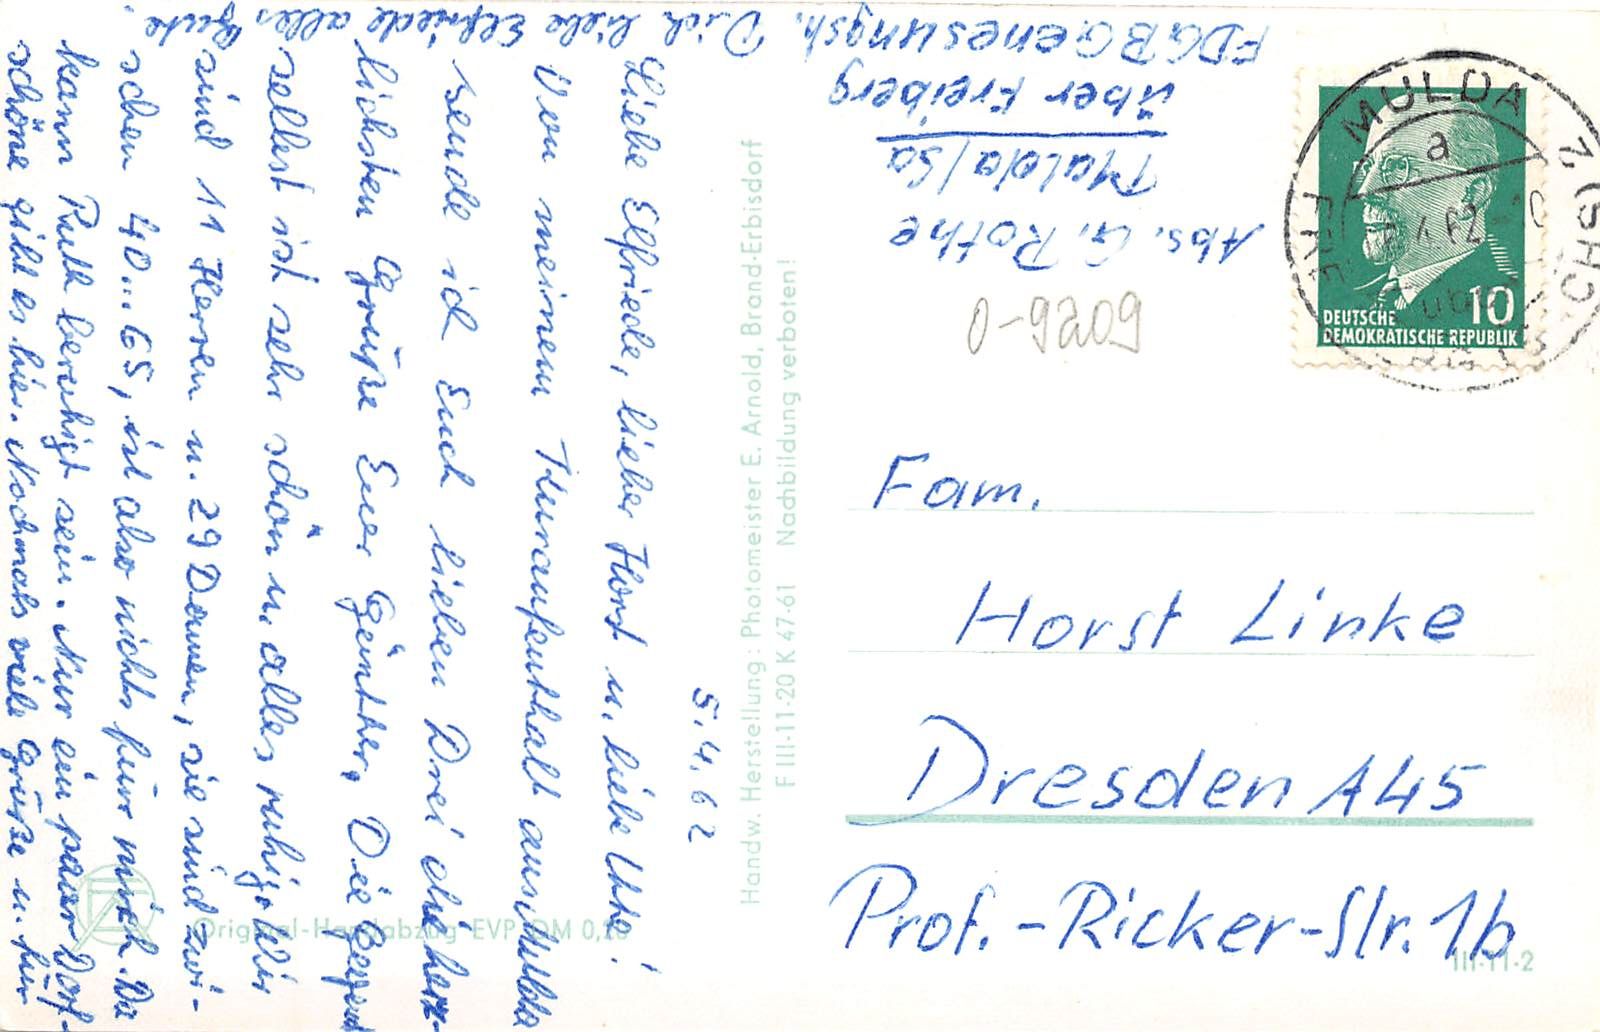 5.4.62
Liebe Elfriede, lieber Horst u. liebe Utte!
Von meinem Kuraufenthalt aus Mulda
sende ich Euch lieben Drei die herz-
lichsten Grüße Euer Günther. Die Gegend
selbst ist sehr schön u. alles ruhig. Wir
sind 11 Herren u. 29 Damen, sie sind zwi-
schen 40...65, ist also nichts fürr mich. Da
kann Ruth beruhigt sein. Nur ein paar Dorf-
schöne gibt es hier. Nochmals viele Grüße u. für
Dich liebe Elfriede alles Gute.
Abs. G. Rothe
Mulda/Sa
über Freiberg
FDGB Genesungsh.
0-9209
Handw. Herstellung: Photomeister E. Arnold, Brand-Erbisdorf
F III-11-20 K 47-61 Nachbildung verboten!
Original-Handabzug EVP DM 0,20
MULDA
a
4.62
10
DEUTSCHE
DEMOKRATISCHE REPUBLIK
Fam.
Horst Linke
Dresden A45
Prof.-Ricker-Str. 1b
III-11-2